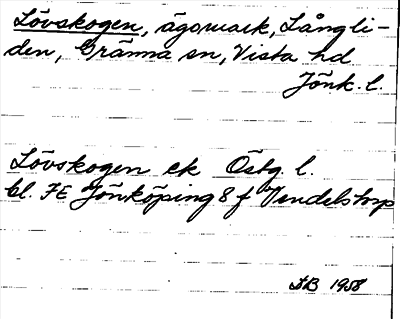 Lövskogen, ägomark, Långli-
den, Gränna sn, Vista hd
Jönk. l.
Lövskogen ek Östg. l.
bl. FE Jönköping 8 f Vendelstorp
AB 1958